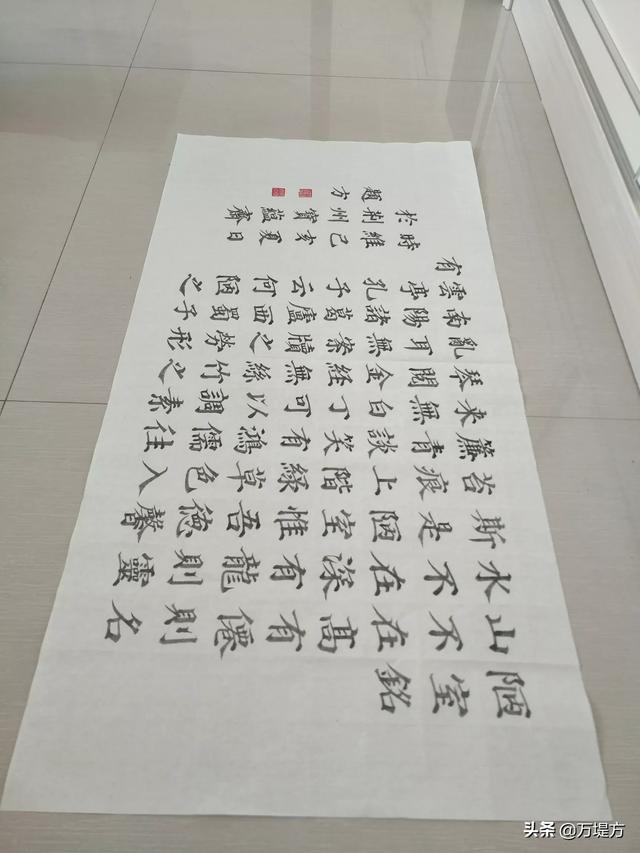 陋室銘
山不在高有僊則名
水不在深有龍則靈
斯是陋室惟吾德馨
苔痕上階綠草色入
簾青談笑有鴻儒往
來無白丁可以調素
琴閱金經無絲竹之
亂耳無案牘之勞形
南陽諸葛廬西蜀子
雲亭孔子云何陋之
有
時維己亥夏日
於荊州寶蘊齋
方
头条 @万堤方